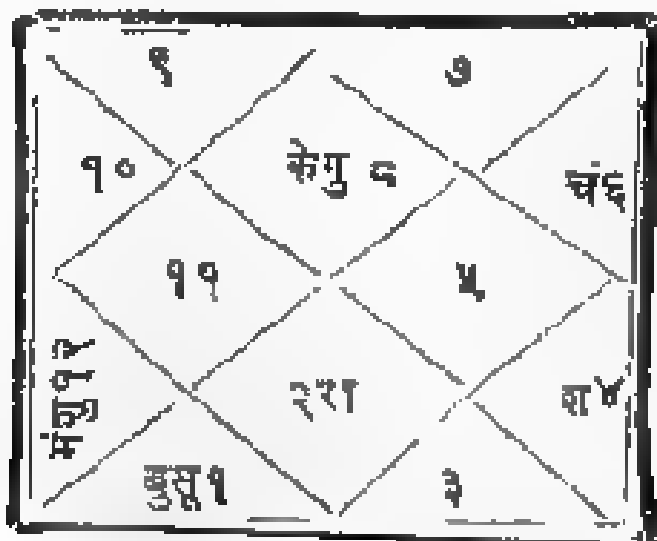 ९ ७
१० केगु ८ चं६
११ ५
मंशु१२ २रा श४
बुसू१ ३